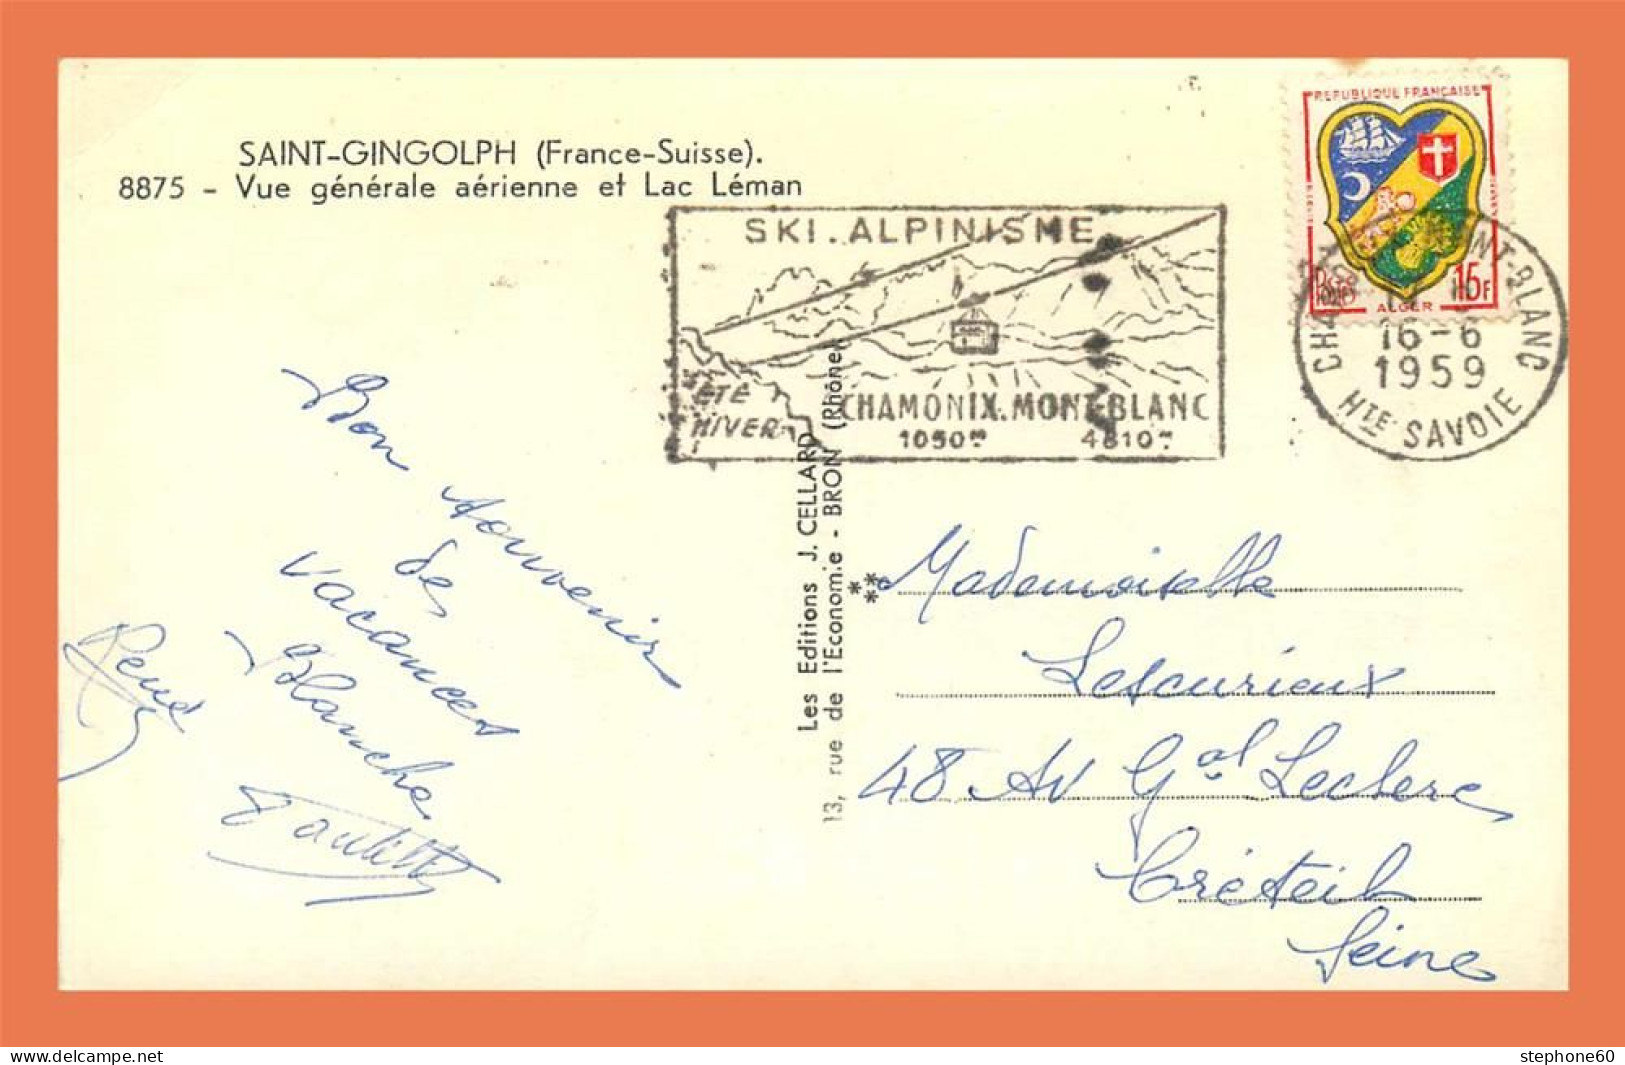 SAINT-GINGOLPH (France-Suisse).
8875 - Vue générale aérienne et Lac Léman
SKI. ALPINISME
ÉTÉ
HIVER
CHAMONIX.MONT-BLANC
1050m 4810m
REPUBLIQUE FRANÇAISE
POSTES
15F
ALGER
CHAMONIX-MONT-BLANC
16-6
1959
HTE SAVOIE
Bon souvenir
de
vacances
Blanche
René
Paulette
Les Editions J. CELLARD
13, rue de l'Economie - BRON (Rhône)
Mademoiselle
Lescurieux
48 Av Gal Leclerc
Créteil
Seine
delcampe.net
stephone60